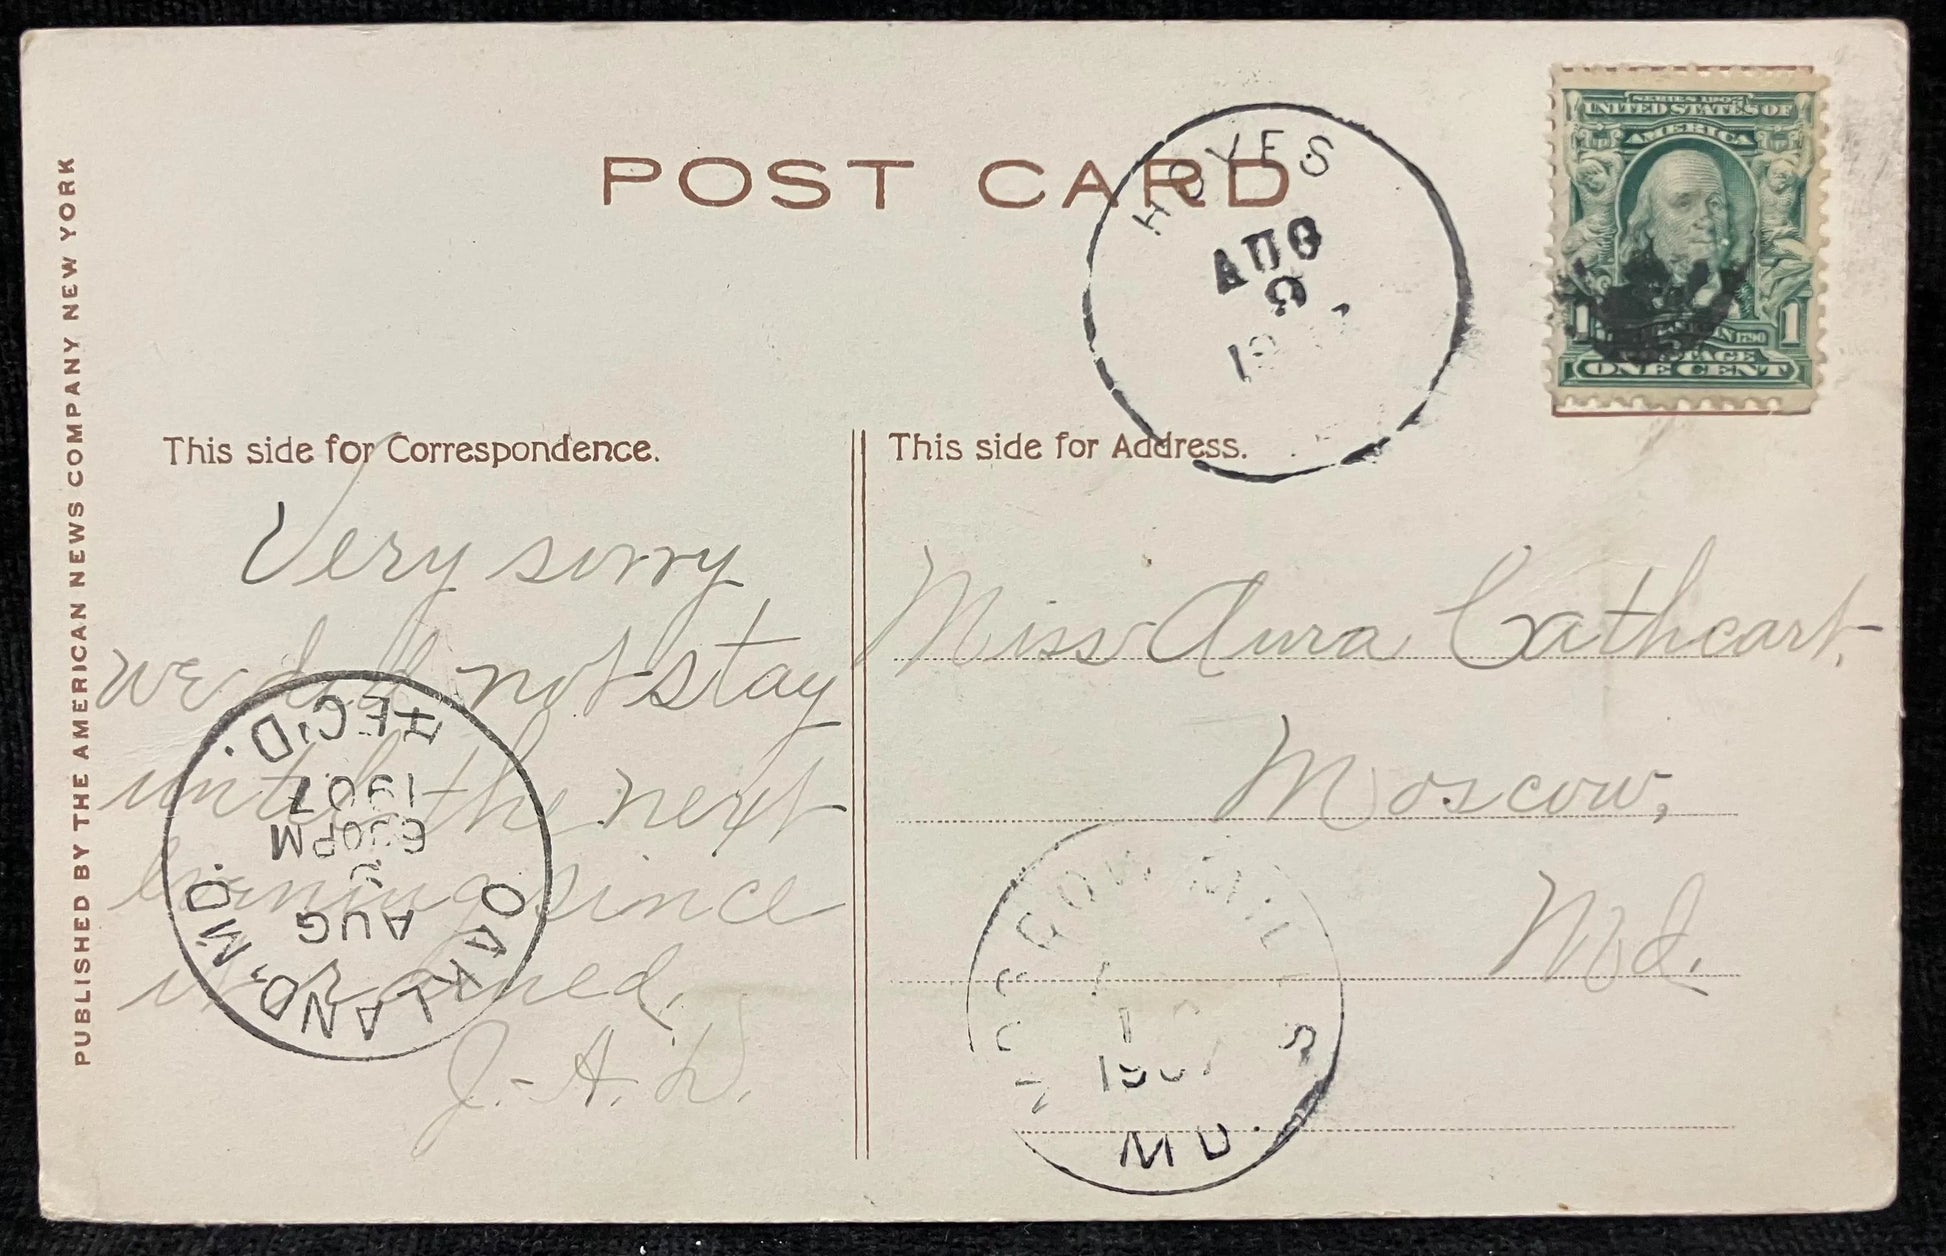 POST CARD
HOYES
AUG
SERIES 1902
UNITED STATES OF
AMERICA
1 1790 1
POSTAGE
ONE CENT
PUBLISHED BY THE AMERICAN NEWS COMPANY NEW YORK
This side for Correspondence.
Very sorry
we did not stay
until the next
evening since
it rained.
J. A. D.
OAKLAND, MD.
AUG
5
630PM
1907
REC'D.
This side for Address.
Miss Aura Cathcart,
Moscow,
Md.
MOSCOW MILLS
1907
MD.